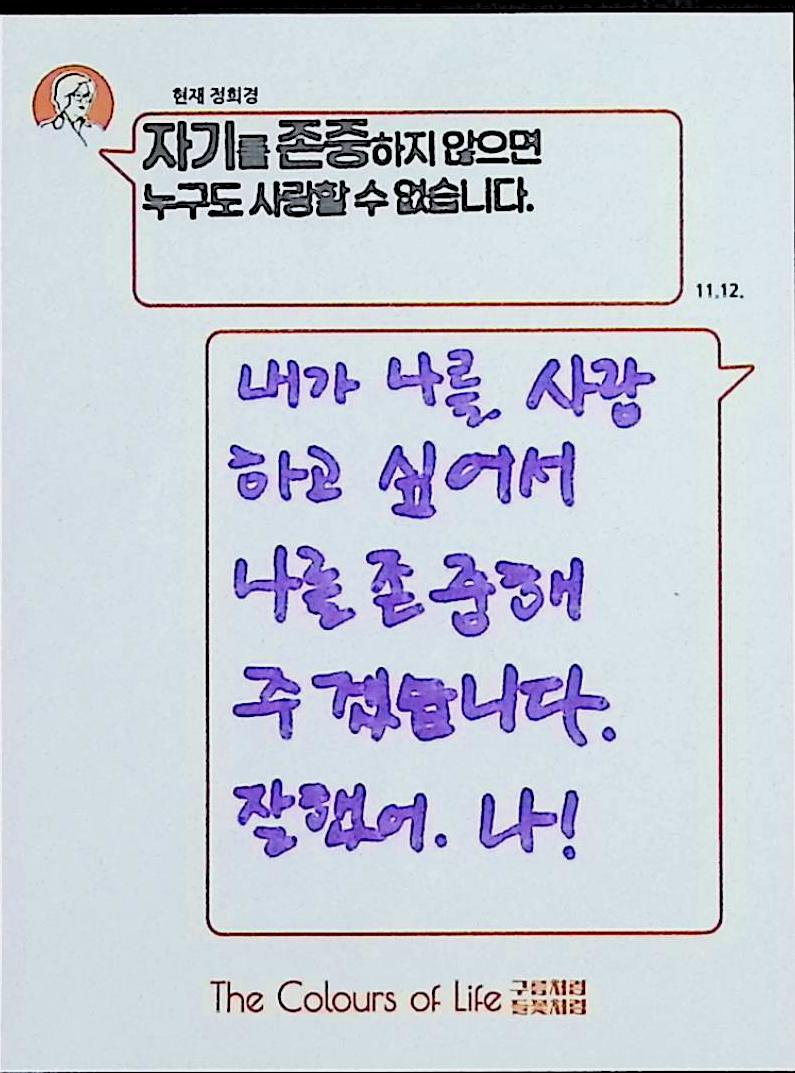 현재 정희경
자기를 존중하지 않으면
누구도 사랑할 수 없습니다.
11.12.
내가 나를 사랑
하고 싶어서
나를 존중해
주겠습니다.
잘했어. 나!
The Colours of Life 구름처럼
들꽃처럼